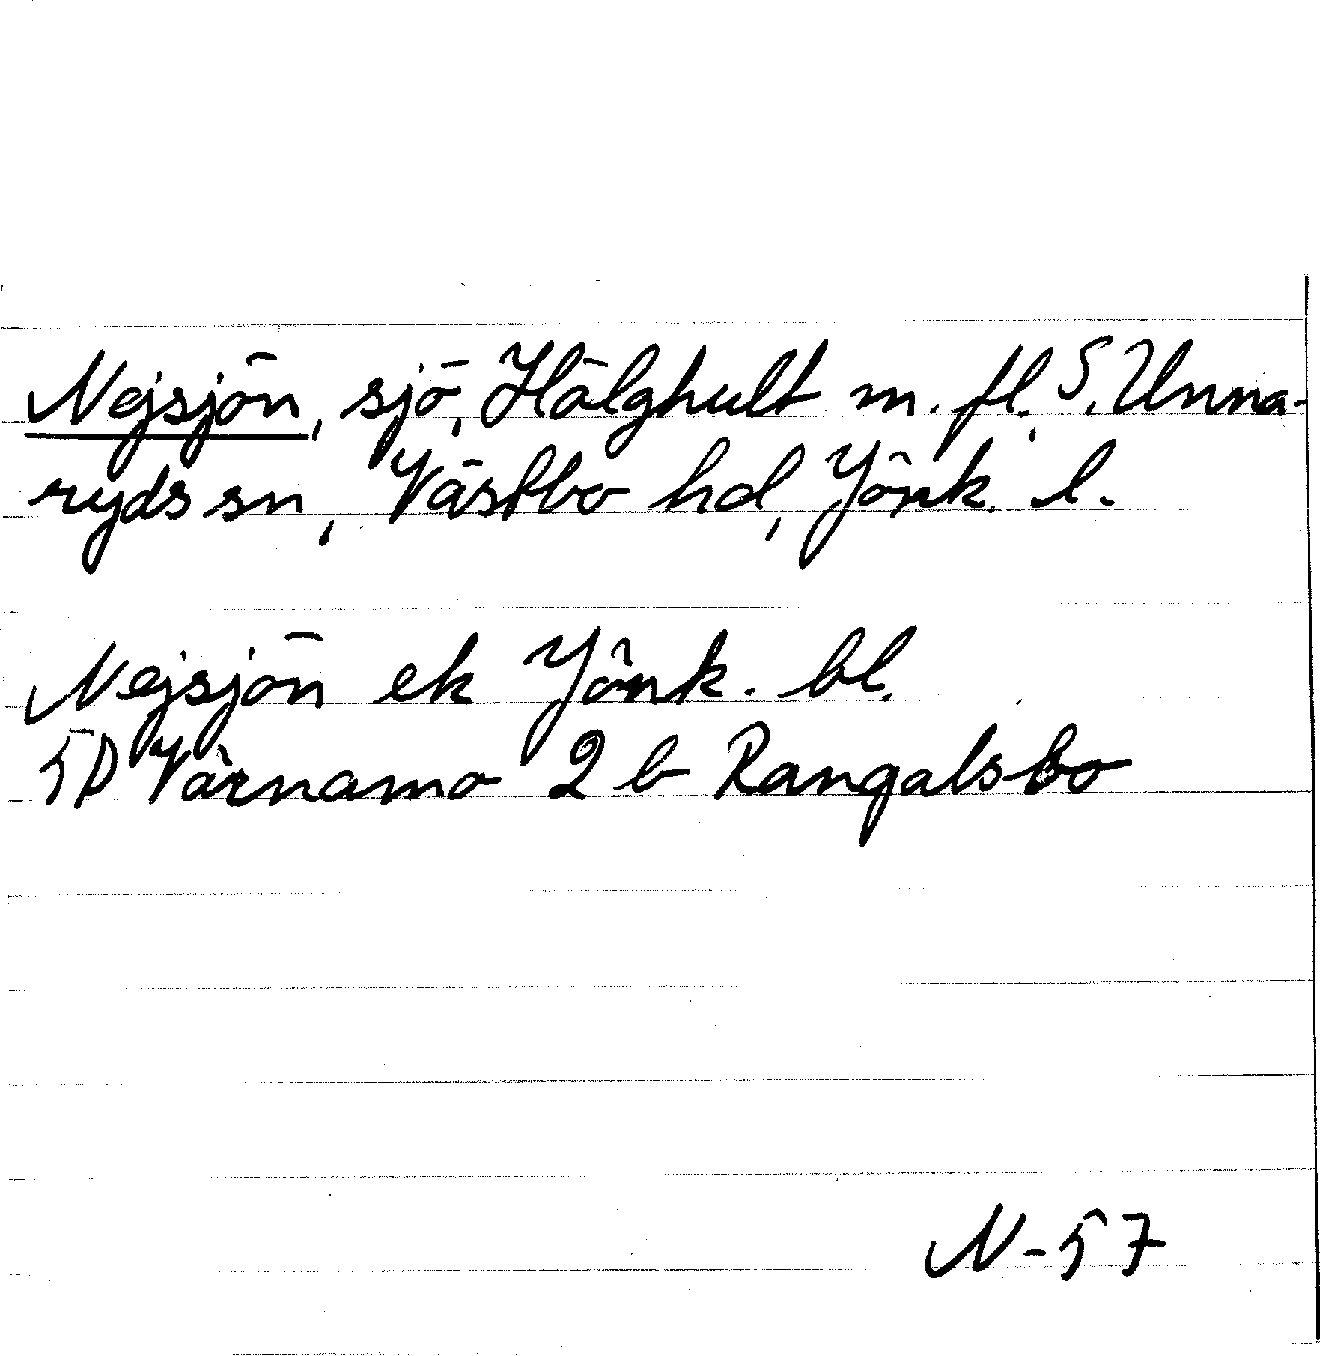 Nejsjön, sjö, Hälghult m. fl. S. Unna-
ryds sn, Västbo hd, Jönk. l.
Nejsjön ek Jönk. bl.
5D Värnamo 2 b Rangalsbo
N-57